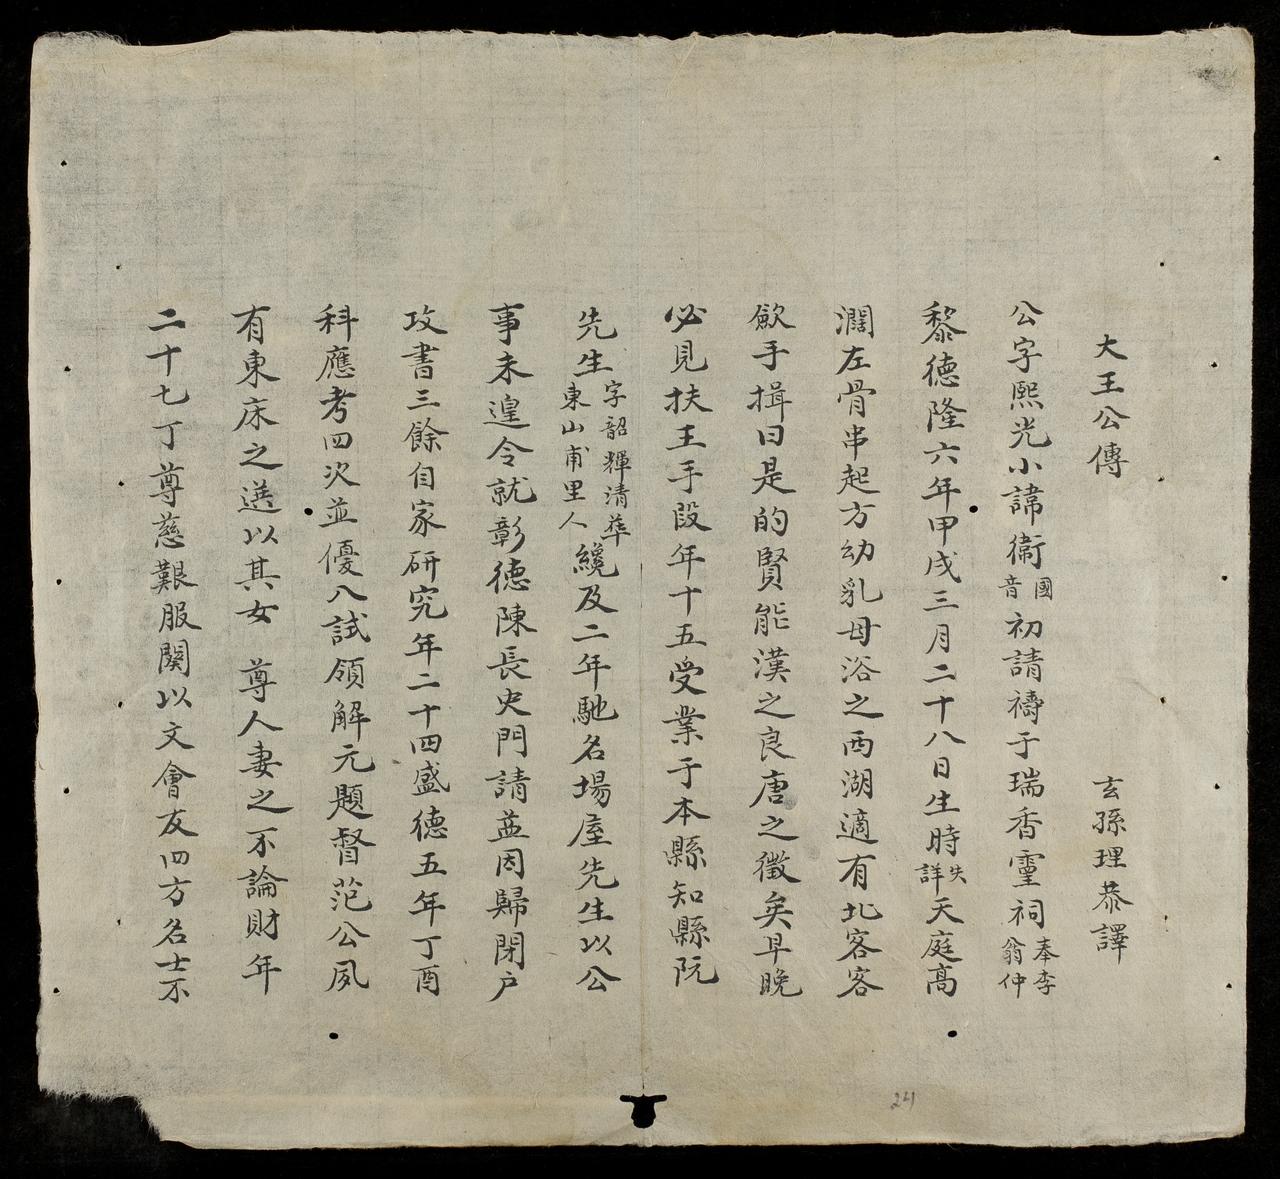 大王公傳　玄孫理恭譯
公字熙光小諱衞國音初請禱于瑞香靈祠奉李翁仲
黎德隆六年甲戌三月二十八日生時失詳天庭高
濶左骨串起方幼乳母浴之西湖適有北客客
歛手揖曰是的賢能漢之良唐之徵矣早晚
必見扶王手段年十五受業于本縣知縣阮
先生字韶輝清華東山甫里人纔及二年馳名場屋先生以公
事未遑令就彰德陳長史門請益因歸閉户
攻書三餘自家研究年二十四盛德五年丁酉
科應考四次並優入試領解元題督范公夙
有東床之選以其女　尊人妻之不論財年
二十七丁尊慈艱服闋以文會友四方名士不
24